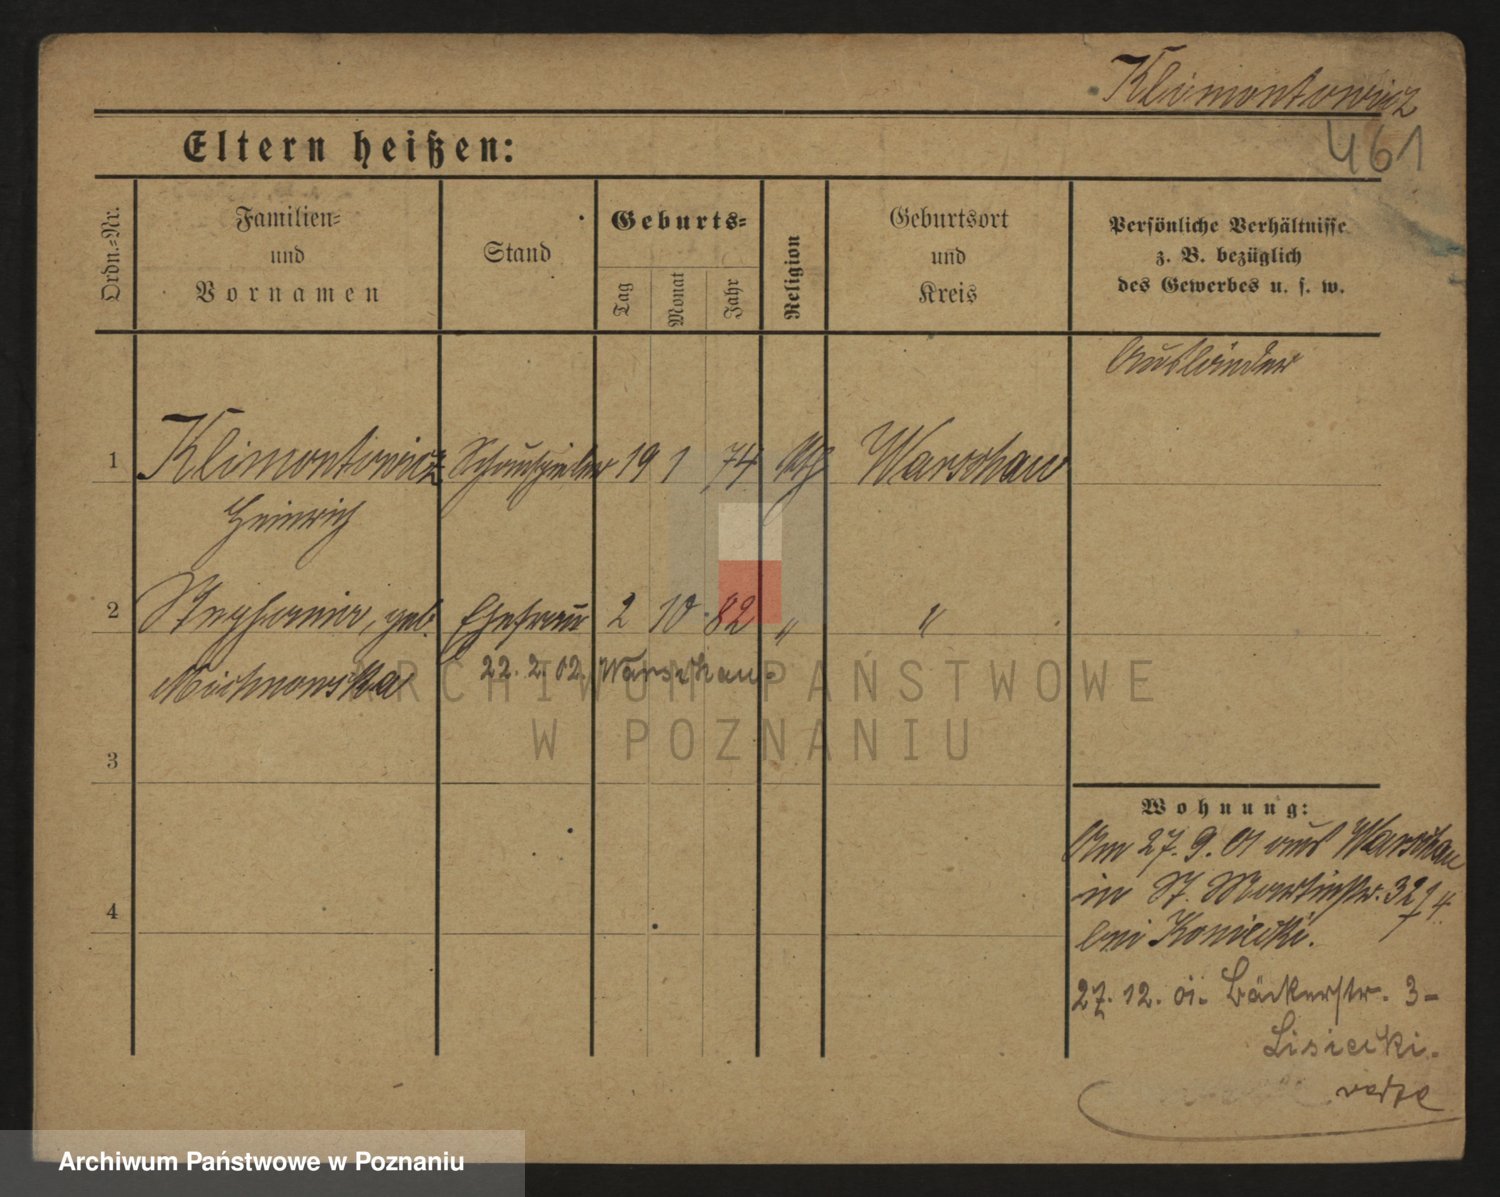 Klimontowicz
461
Eltern heißen:
Ordn.=Nr.
Familien=
und
Vornamen
Stand
Geburts=
Tag
Monat
Jahr
Religion
Geburtsort
und
Kreis
Persönliche Verhältnisse
z. B. bezüglich
des Gewerbes u. s. w.
Ausländer
1 Klimontowicz Schauspieler 19 1 74 Warschau
Heinrich
2 Stephania, geb. Ehefrau 2 10 82 " "
Michnowska 22. 2. 02. Warschau.
ARCHIWUM PAŃSTWOWE
W POZNANIU
3
4
Wohnung:
Am 27. 9. 01 aus Warschau
in St. Martinstr.
bei Koniecki.
27. 12. 01. Bäckerstr. 3-
Lisiecki.
Archiwum Państwowe w Poznaniu